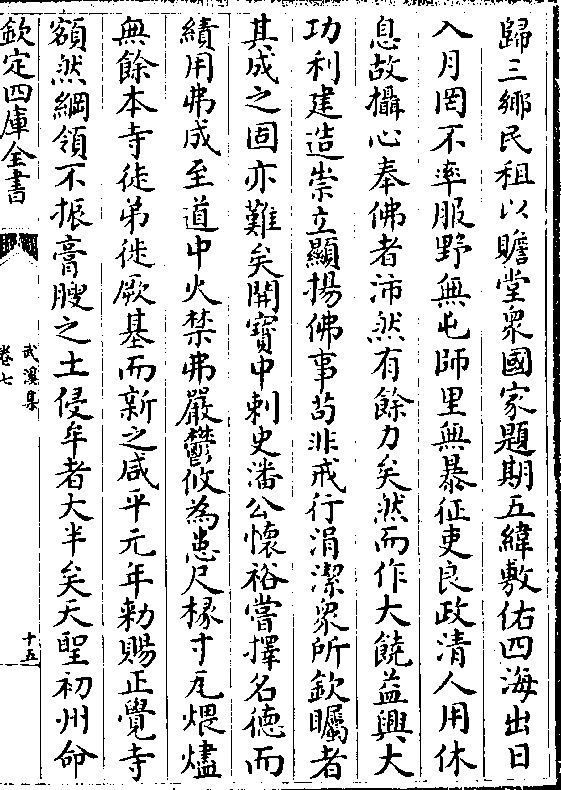 歸三鄉民租以贍堂衆國家題期五緯敷佑四海出日
入月罔不率服野無屯師里無暴征吏良政清人用休
息故攝心奉佛者沛然有餘力矣然而作大饒益興大
功利建造崇立顯揚佛事苟非戒行涓潔衆所欽矚者
其成之固亦難矣開寶中刺史潘公懷裕嘗擇名德而
績用弗成至道中火禁弗嚴鬱攸為患尺椽寸瓦煨燼
無餘本寺徒弟徙厥基而新之咸平元年勅賜正覺寺
額然綱領不振膏腴之土侵牟者大半矣天聖初州命
欽定四庫全書
武溪集
卷七
十五